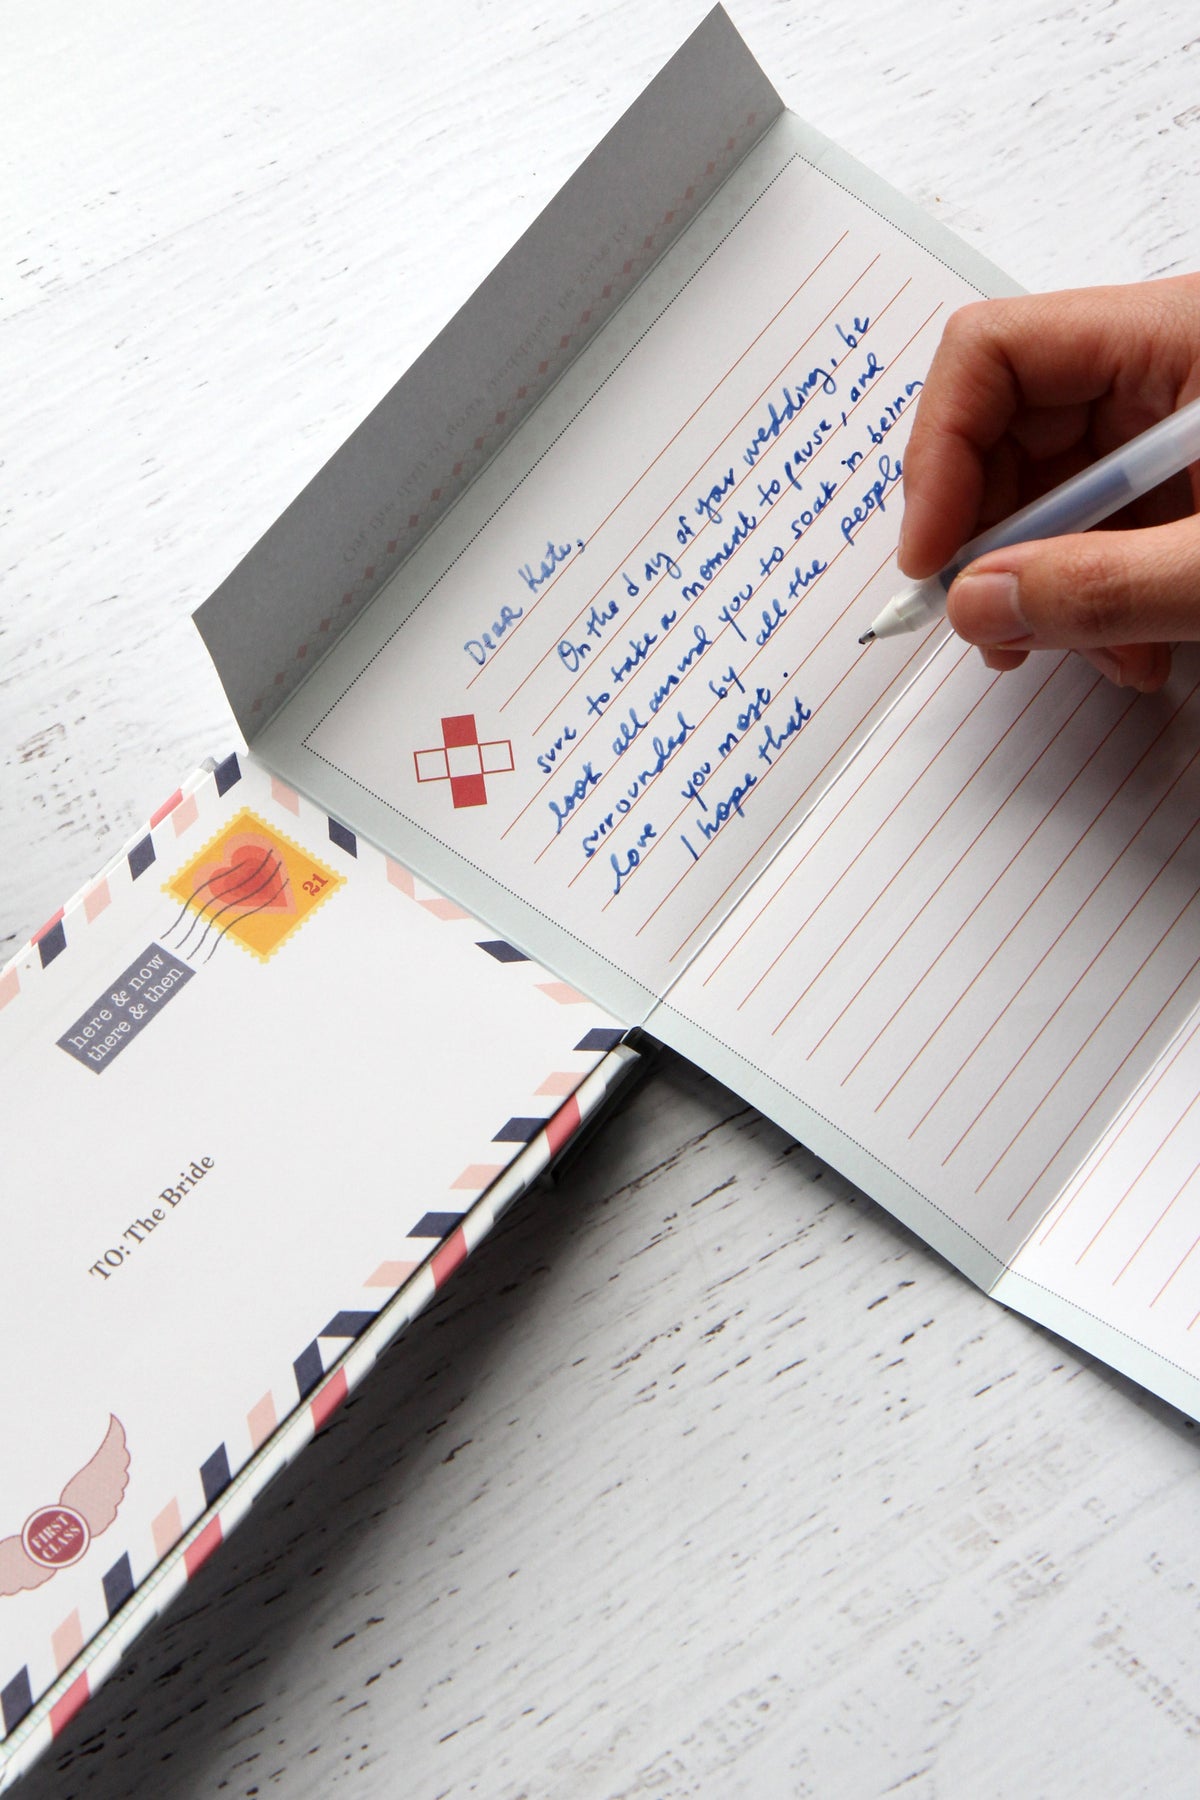 Dear Kate,
On the day of your wedding, be
sure to take a moment to pause, and
look all around you to soak in being
surrounded by all the people
love you most.
I hope that
21
here & now
there & then
TO: The Bride
FIRST
CLASS